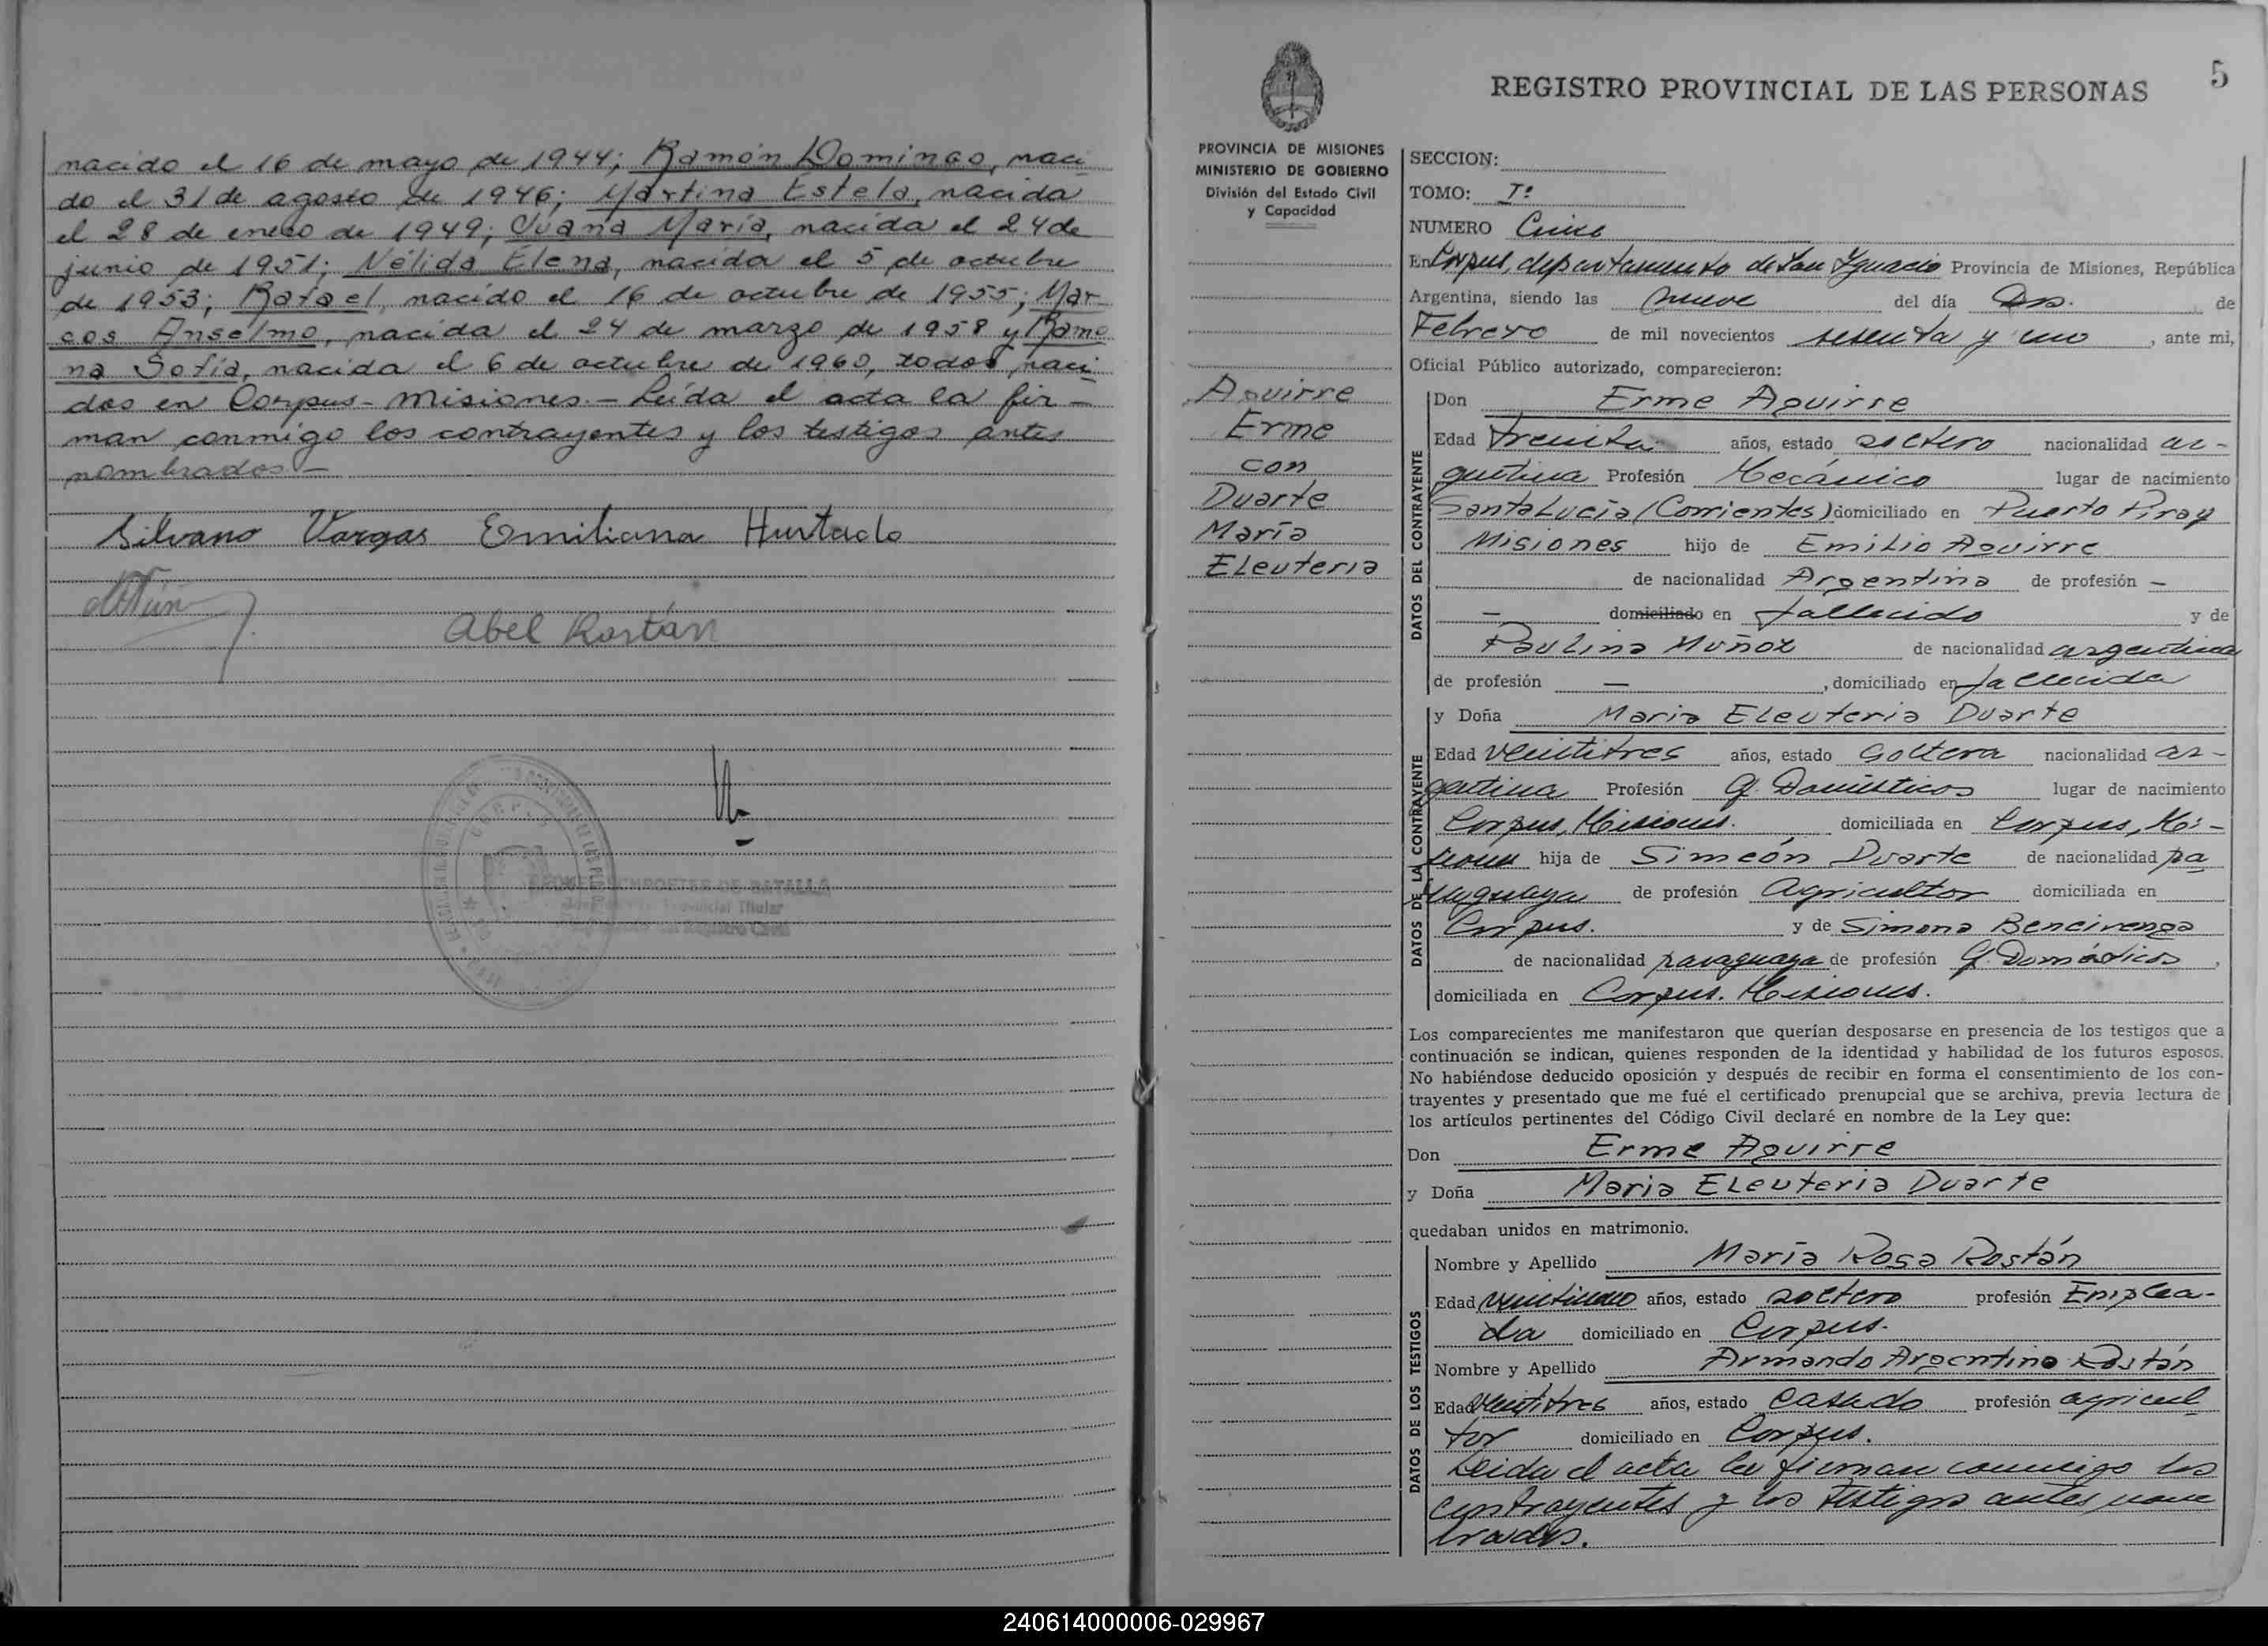 nacido el 16 de mayo de 1944; Ramón Domingo, naci
do el 31 de agosto de 1946; Martina Estela, nacida
el 28 de enero de 1949; Juana María, nacida el 24 de
junio de 1951; Nélida Elena, nacida el 5 de octubre
de 1953; Rafael, nacido el 16 de octubre de 1955; Mar-
cos Anselmo, nacida el 24 de marzo de 1958 y Ramo
na Sofía, nacida el 6 de octubre de 1960, todos naci
dos en Corpus - Misiones. - Leída el acta la fir -
man conmigo los contrayentes y los testigos antes
nombrados. -
Silvano Vargas Emiliana Hurtado
Abel Rostán
CORPUS
DE BATALLA
Titular
Registro Civil
5
REGISTRO PROVINCIAL DE LAS PERSONAS
PROVINCIA DE MISIONES
MINISTERIO DE GOBIERNO
División del Estado Civil
y Capacidad
Aguirre
Erme
con
Duarte
María
Eleuteria
SECCION:
TOMO: Iº
NUMERO Cinco
En Corpus, departamento de San Ignacio Provincia de Misiones, República
Argentina, siendo las nueve del día Dos. de
Febrero de mil novecientos sesenta y uno, ante mi,
Oficial Público autorizado, comparecieron:
DATOS DEL CONTRAYENTE
Don Erme Aguirre
Edad treinta años, estado soltero nacionalidad ar -
gentina Profesión Mecánico lugar de nacimiento
Santa Lucía (Corrientes) domiciliado en Puerto Piray
Misiones hijo de Emilio Aguirre
de nacionalidad Argentina de profesión -
- domiciliado en fallecido y de
Paulina Muñoz de nacionalidad argentina
de profesión - , domiciliado en fallecida
DATOS DE LA CONTRAYENTE
y Doña Maria Eleuteria Duarte
Edad veintitres años, estado Soltera nacionalidad ar -
gentina Profesión Q. Domésticos lugar de nacimiento
Corpus, Misiones. domiciliada en Corpus, Mi -
siones hija de Simeón Duarte de nacionalidad pa
raguaya de profesión Agricultor domiciliada en
Corpus. y de Simona Bencivenga
de nacionalidad paraguaya de profesión Q. Domésticos,
domiciliada en Corpus. Misiones.
Los comparecientes me manifestaron que querían desposarse en presencia de los testigos que a
continuación se indican, quienes responden de la identidad y habilidad de los futuros esposos.
No habiéndose deducido oposición y después de recibir en forma el consentimiento de los con-
trayentes y presentado que me fué el certificado prenupcial que se archiva, previa lectura de
los artículos pertinentes del Código Civil declaré en nombre de la Ley que:
Don Erme Aguirre
y Doña Maria Eleuteria Duarte
quedaban unidos en matrimonio.
DATOS DE LOS TESTIGOS
Nombre y Apellido María Rosa Rostán
Edad años, estado soltero profesión Emplea-
da domiciliado en Corpus.
Nombre y Apellido Armando Argentino Rostán
Edad veintitres años, estado casado profesión agricul
tor domiciliado en Corpus.
Leida el acta la firman conmigo los
contrayentes y los testigos antes nom
brados.
240614000006-029967